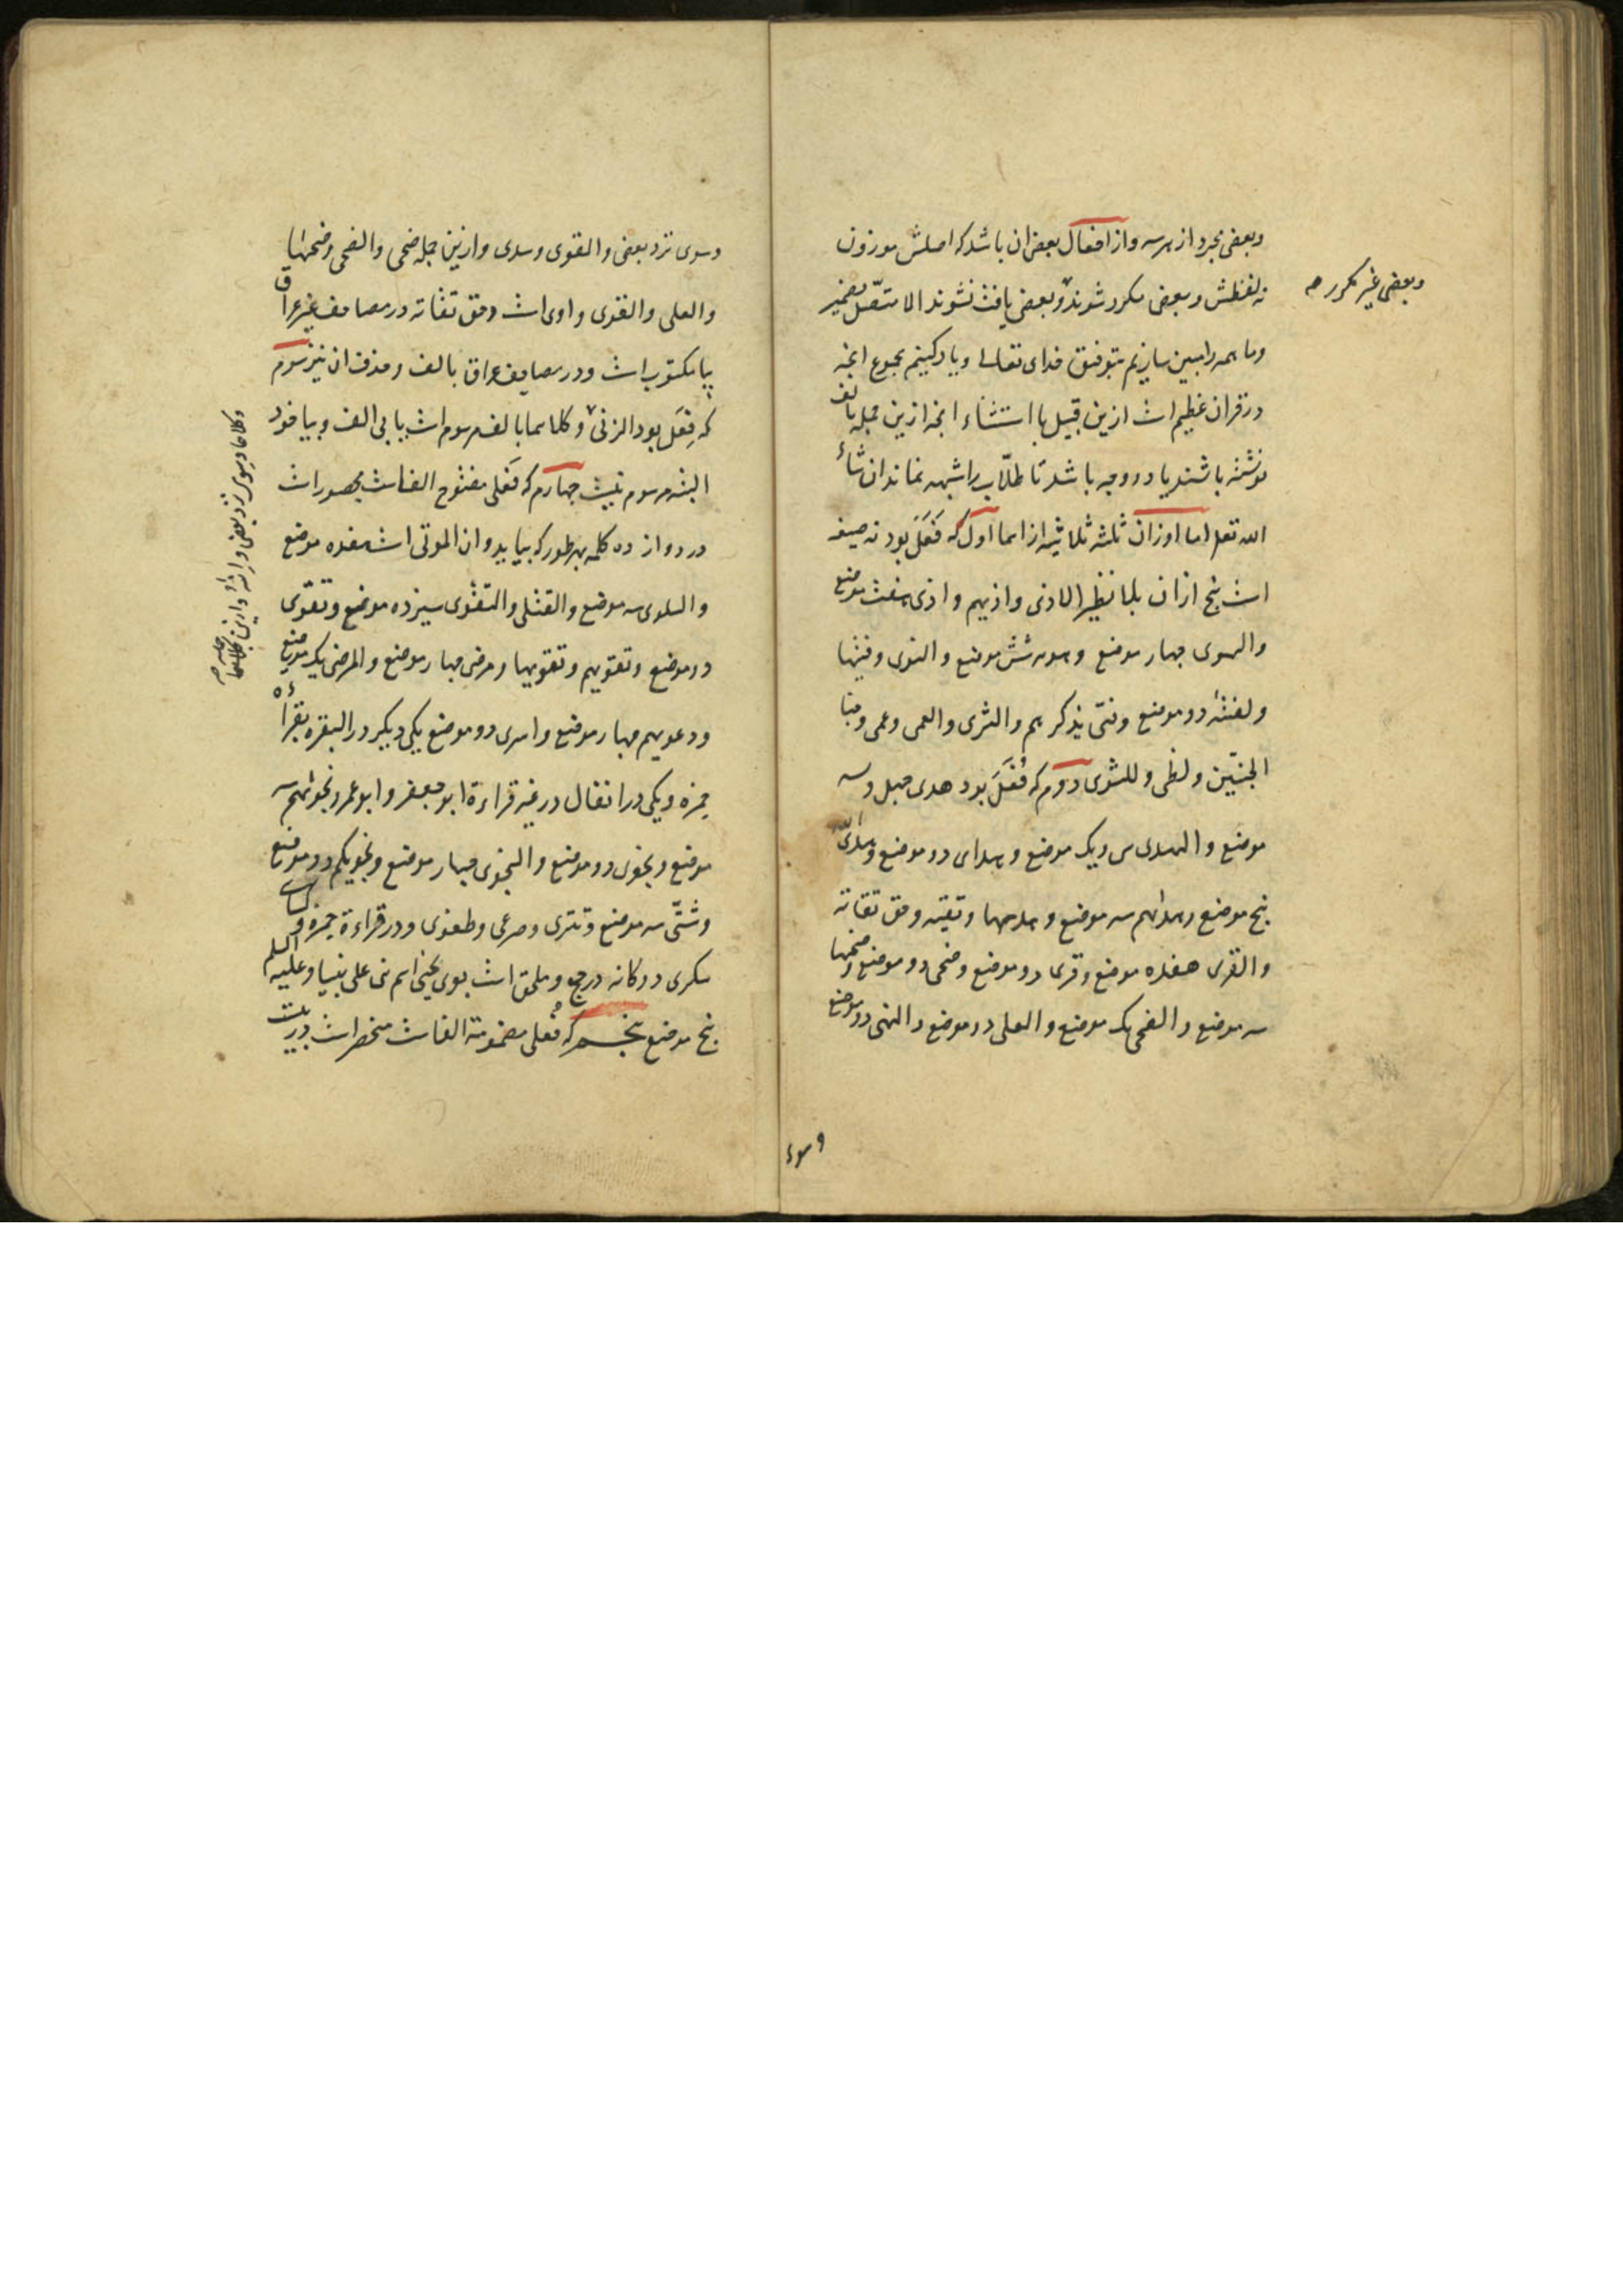 وبعضی مجرد از هر سه واز افعال بعض ان باشد که اصلش موزون
نه لفظش وبعضی مکرر شوند وبعضی یافت نشوند الا متصل بضمیر
وبعضی غیر مکرر صح
وما همه را مبین سازیم بتوفیق خدای تعالی ویاد کنیم مجموع انچه
در قران عظیم است ازین قبیل با استثناء انچه ازین جمله بالف
نوشته باشند یا دو وجه باشد تا طلاب را شبهه نماند ان شاء
الله تعه اما اوزان ثلثه ثلاثیه از اسما اول که فَعَل بود نه صیغه
است پنج ازان بلا نظیر الاذی واذیهم واذی هفت موضع
والهوی چهار موضع وهویه شش موضع والنوی
ولفتیه دو موضع وفتی یذکرهم والثری والعمی وعمی وجنا
الجنتین ولظی وللشوی دوم که فُعَل بود هدی چهل وسه
موضع والهدی سی ویک موضع وهدای دو موضع
پنج موضع وهدیهم سه موضع وهدیها وتقیه وحق تقاته
والقری هفده موضع وقری دو موضع وضحی دو موضع وضحیها
سه موضع والضحی یک موضع والعلی دو موضع والنهی دو موضع
وسوی
وسوی نزد بعضی والقوی وسدی وازین جمله ضحی والضحی وضحیها
والعلی والقوی واوی است وحق تقاته در مصاحف غیر عراق
بیا مکتوب است ودر مصاحف عراق بالف وحذف ان نیز سوم
که فِعَل بود الزنی وکلاهما بالف مرسوم است یا بی الف وبیا خود
البته مرسوم نیست چهارم که فَعلی مفتوح الفاست محصور است
در دوازده کلمه بهر طور که بیاید وان الموتی است هفده موضع
والسلوی سه موضع والقتلی والتقوی سیزده موضع وتقوی
دو موضع وتقویهم وتقویها ومرضی چهار موضع والمرضی یک موضع
ودعویهم چهار موضع واسری دو موضع یکی دیگر در البقره بقراءة
حمزه ویکی در انفال در غیر قراءة ابو جعفر وابو عمرو ونجویهم سه
موضع ونجوی دو موضع والنجوی چهار موضع ونجویکم دو موضع
وشتّی سه موضع وتتری وصرعی وطغوی ودر قراءة حمزه وکسایی
سکری دوگانه در حج وملحق است بوی یحیی اسم نبی علی نبینا وعلیه السلم
پنج موضع پنجم که فُعلی مضمومة الفاست منحصر است در بیست